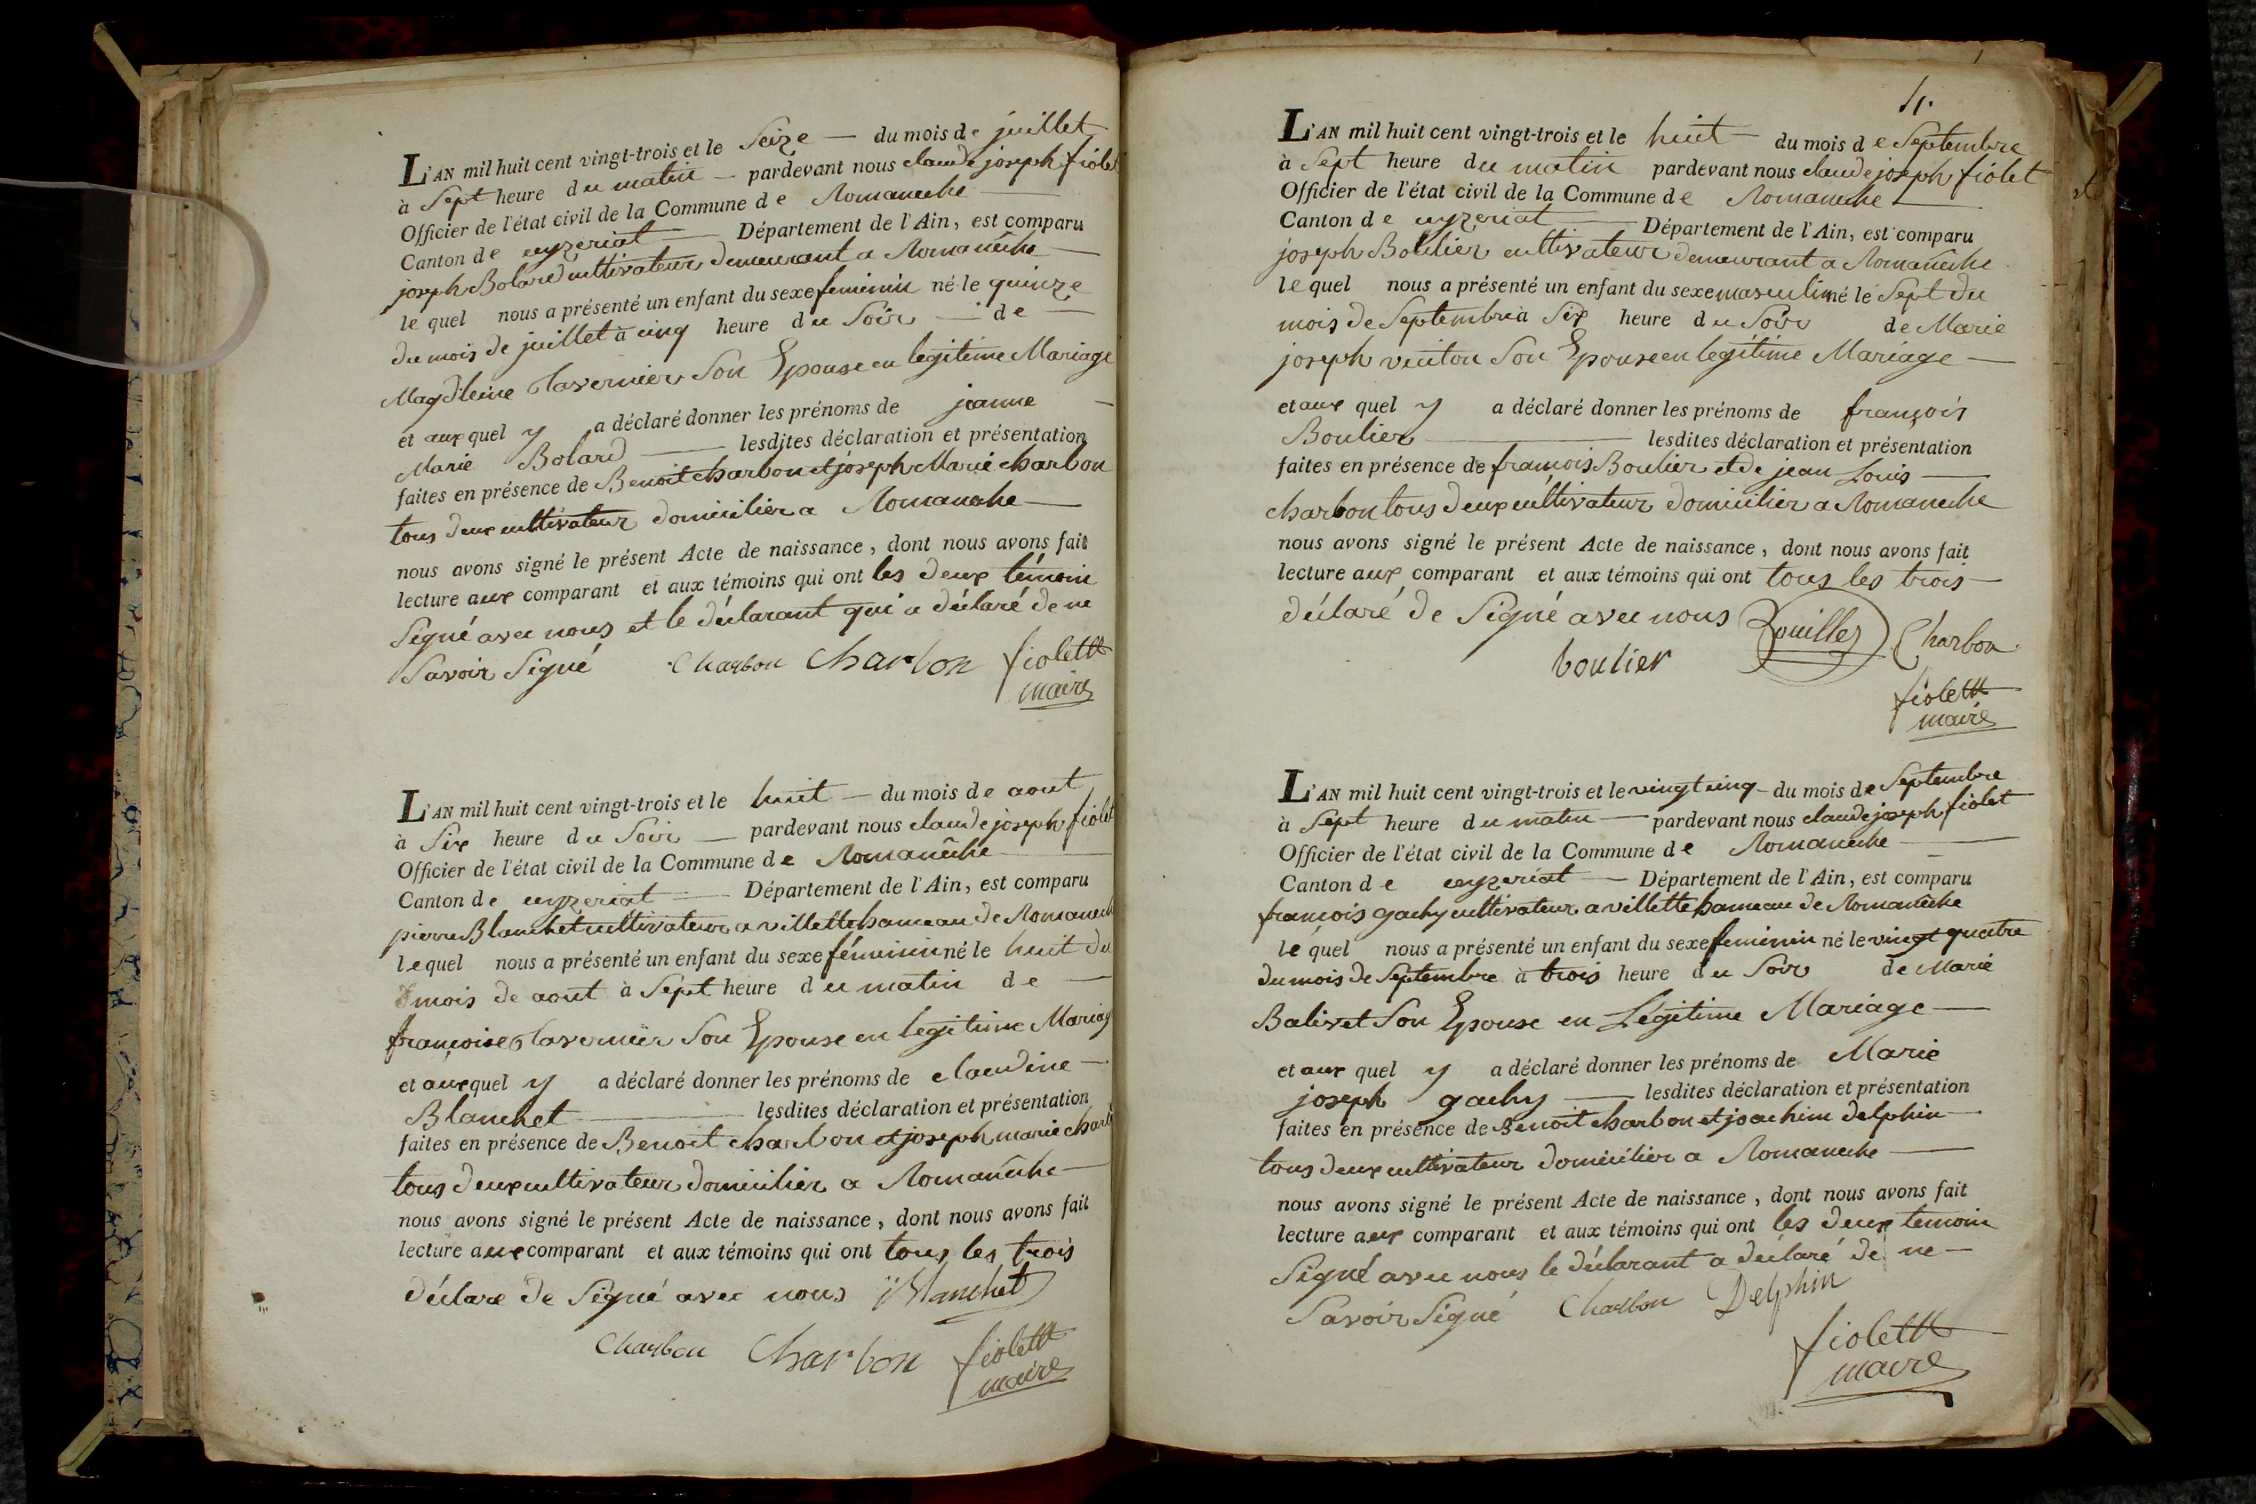 L'AN mil huit cent vingt-trois et le Seize — du mois de juillet
à Sept heure du matin — pardevant nous claude joseph fiolet
Officier de l'état civil de la Commune de Romaneche
Canton de ceyzeriat — Département de l'Ain, est comparu
joseph Bolard cultivateur demeurant a Romanêche
lequel nous a présenté un enfant du sexe feminin né le quinze
du mois de juillet à cinq heure du Soir — de —
Magdleine Tavernier Son Epouse en legitime Mariage
et aux quel y a déclaré donner les prénoms de jeanne
Marie Bolard — lesdites déclaration et présentation
faites en présence de Benoit charbon et joseph Marie charbon
tous deux cultivateur domicilier a Romaneche
nous avons signé le présent Acte de naissance, dont nous avons fait
lecture aux comparant et aux témoins qui ont les deux témoin
Signé avec nous et le déclarant qui a déclaré de ne
Savoir Signé Charbon Charbon fiolett
maire
L'AN mil huit cent vingt-trois et le huit — du mois de aout
à Six heure du Soir — pardevant nous claude joseph fiolet
Officier de l'état civil de la Commune de Romanêche
Canton de ceyzeriat — Département de l'Ain, est comparu
pierre Blanchet cultivateur a villette hameau de Romanech
lequel nous a présenté un enfant du sexe féminin né le huit du
mois de aout à Sept heure du matin de —
françoise Tavernier Son Epouse en legitime Mariag
et aux quel y a déclaré donner les prénoms de claudine
Blanchet — lesdites déclaration et présentation
faites en présence de Benoit charbon et joseph marie charb
tous deux cultivateur domicilier a Romanêche
nous avons signé le présent Acte de naissance, dont nous avons fait
lecture aux comparant et aux témoins qui ont tous les trois
déclare de Signé avec nous Blanchet
Charbon Charbon fiolett
maire
4.
L'AN mil huit cent vingt-trois et le huit du mois de Septembre
à Sept heure du matin pardevant nous claude joseph fiolet
Officier de l'état civil de la Commune de Romaneche
Canton de ceyzeriat — Département de l'Ain, est comparu
joseph Boulier cultivateur demeurant a Romanêche
lequel nous a présenté un enfant du sexe masculin né le Sept du
mois de Septembre à Six heure du Soir de Marie
joseph venton Son Epouse en legitime Mariage —
et aux quel y a déclaré donner les prénoms de françois
Boulier — lesdites déclaration et présentation
faites en présence de françois Boulier et de jean Louis
charbon tous deux cultivateur domicilier a Romaneche
nous avons signé le présent Acte de naissance, dont nous avons fait
lecture aux comparant et aux témoins qui ont tous les trois
déclaré de Signé avec nous Charbon
boulier
fiolett
maire
L'AN mil huit cent vingt-trois et le vingt cinq — du mois de Septembre
à Sept heure du matin — pardevant nous claude joseph fiolet
Officier de l'état civil de la Commune de Romaneche
Canton de ceyzeriat — Département de l'Ain, est comparu
francois gachy cultivateur a villette hameau de Romanêche
lequel nous a présenté un enfant du sexe feminin né le vingt quatre
du mois de Septembre à trois heure du Soir de Marie
Balivet Son Epouse en Légitime Mariage —
et aux quel y a déclaré donner les prénoms de Marie
joseph gachy — lesdites déclaration et présentation
faites en présence de Benoit charbon et joachim delphin
tous deux cultivateur domicilier a Romaneche
nous avons signé le présent Acte de naissance, dont nous avons fait
lecture aux comparant et aux témoins qui ont les deux temoin
Signé avec nous le déclarant a déclaré de ne
Savoir Signé Charbon Delphin
fiolett
maire